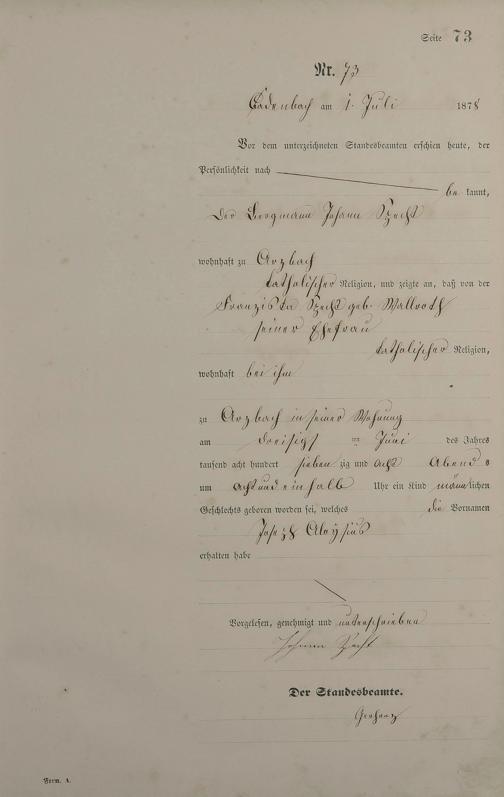 Seite 73
Nr. 73
Cadenbach am 1. Juli 1878
Vor dem unterzeichneten Standesbeamten erschien heute, der
Persönlichkeit nach
be kannt,
der Bergmann Johann Specht
wohnhaft zu Arzbach
katholischer Religion, und zeigte an, daß von der
Franziska Specht geb. Wallroth
seiner Ehefrau
katholischer Religion,
wohnhaft bei ihm
zu Arzbach in seiner Wohnung
am dreisigst en Juni des Jahres
tausend acht hundert sieben zig und acht Abends
um acht und ein halb Uhr ein Kind männlichen
Geschlechts geboren worden sei, welches die Vornamen
Joseph Aloysius
erhalten habe
Vorgelesen, genehmigt und unterschrieben
Johann Specht
Der Standesbeamte.
Form. A.